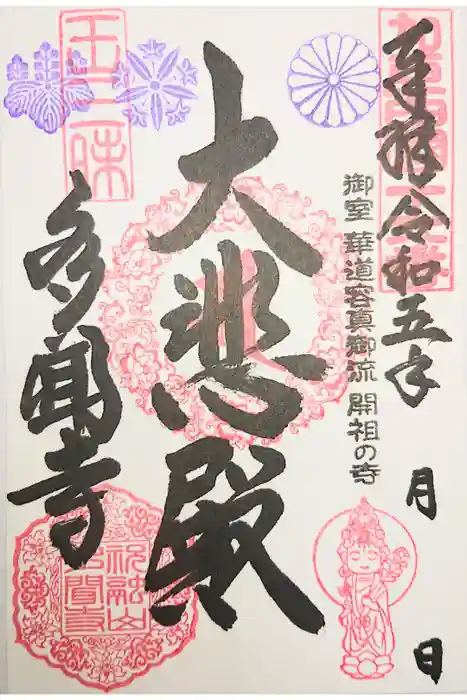 奉拝令和五年 月 日
御室 華道容真御流 開祖の寺
大悲殿
多聞寺
王三昧
祝融山
多聞寺